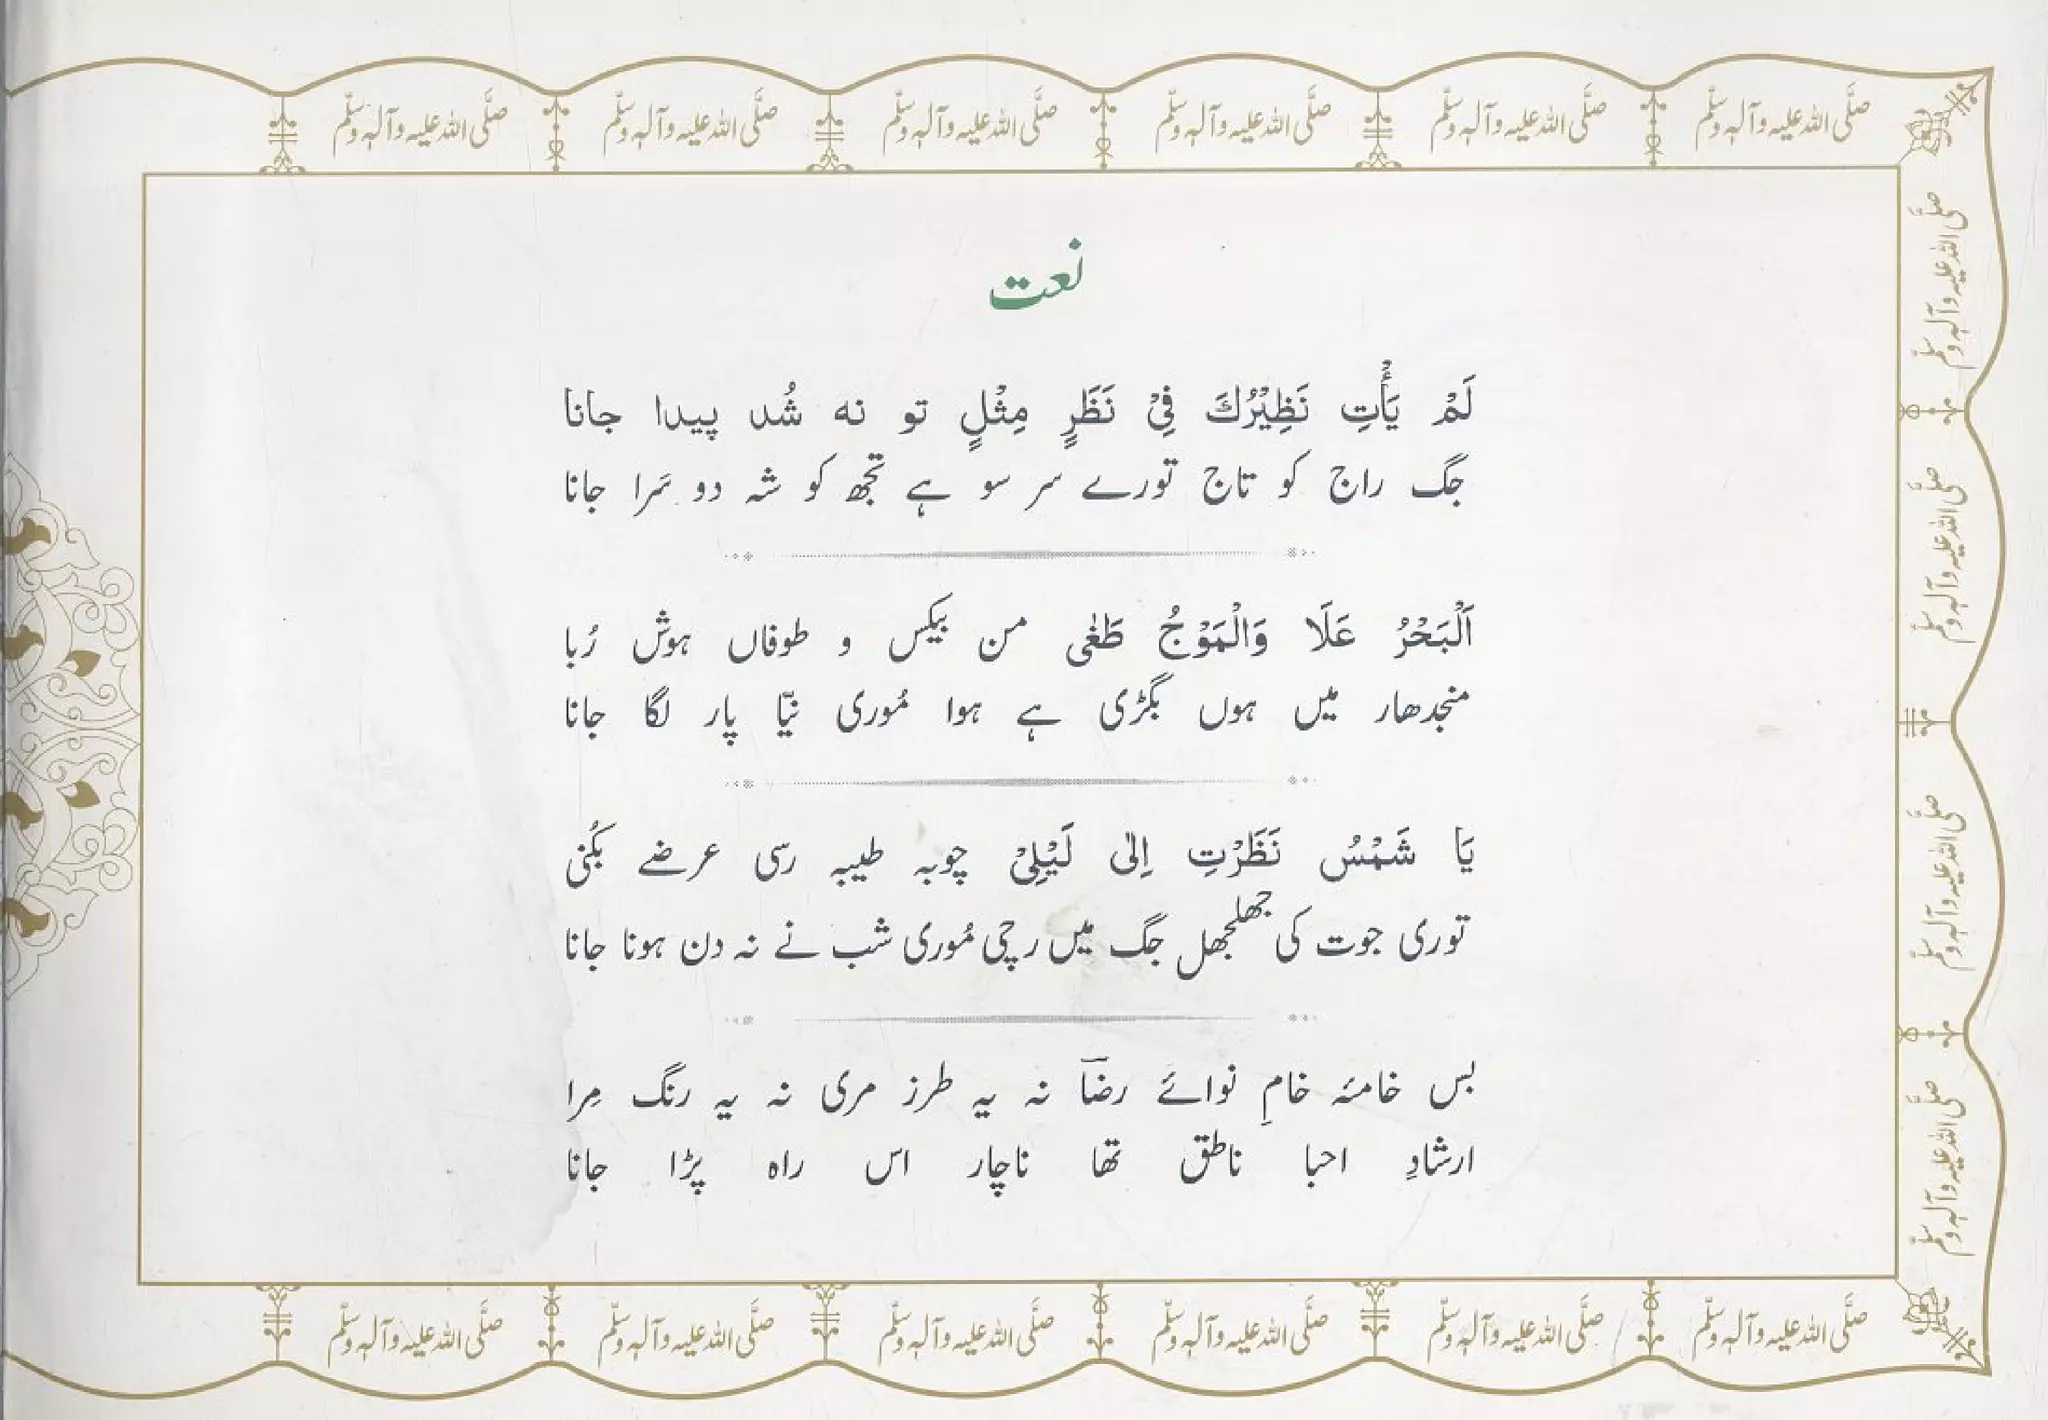 صلَّی اللہ علیہ وآلہٖ وسلَّم صلَّی اللہ علیہ وآلہٖ وسلَّم صلَّی اللہ علیہ وآلہٖ وسلَّم صلَّی اللہ علیہ وآلہٖ وسلَّم صلَّی اللہ علیہ وآلہٖ وسلَّم صلَّی اللہ علیہ وآلہٖ وسلَّم
نعت
لَمْ يَأْتِ نَظِيْرُكَ فِيْ نَظَرٍ مِثْلِ تو نہ شُد پیدا جانا
جگ راج کو تاج تورے سر سو ہے تجھ کو شہ دو سَرا جانا
اَلْبَحْرُ عَلَا وَالْمَوْجُ طَغٰی من بیکس و طوفاں ہوش رُبا
منجدھار میں ہوں بگڑی ہے ہوا مُوری نیّا پار لگا جانا
يَا شَمْسُ نَظَرْتِ اِلٰی لَيْلِيْ چوبہ طیبہ رسی عرضے بکُنی
توری جوت کی جھلجھل جگ میں رچی مُوری شب نے نہ دن ہونا جانا
بس خامئہ خامِ نوائے رضاؔ نہ یہ طرز مری نہ یہ رنگ مِرا
ارشادِ احبا ناطق تھا ناچار اس راہ پڑا جانا
صلَّی اللہ علیہ وآلہٖ وسلَّم
صلَّی اللہ علیہ وآلہٖ وسلَّم
صلَّی اللہ علیہ وآلہٖ وسلَّم
صلَّی اللہ علیہ وآلہٖ وسلَّم
صلَّی اللہ علیہ وآلہٖ وسلَّم صلَّی اللہ علیہ وآلہٖ وسلَّم صلَّی اللہ علیہ وآلہٖ وسلَّم صلَّی اللہ علیہ وآلہٖ وسلَّم صلَّی اللہ علیہ وآلہٖ وسلَّم صلَّی اللہ علیہ وآلہٖ وسلَّم